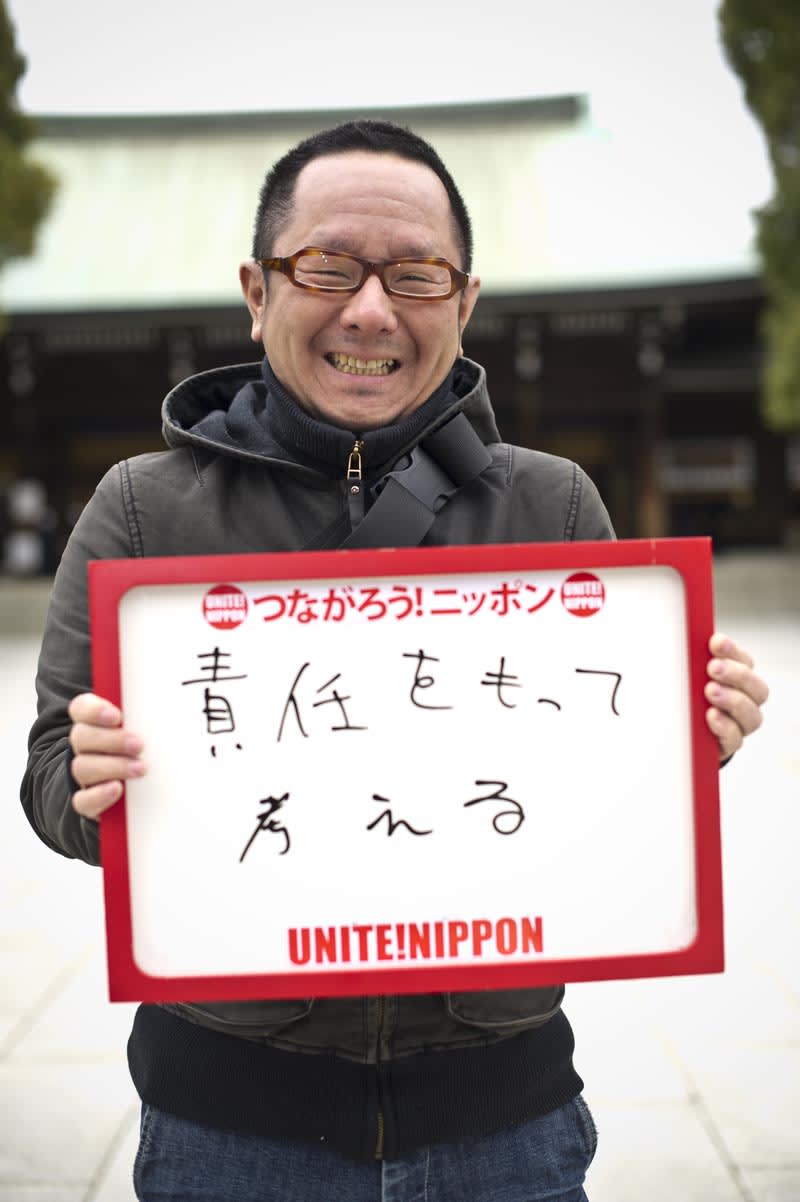 UNITE! NIPPON つながろう!ニッポン UNITE! NIPPON
責任をもって
考える
UNITE!NIPPON